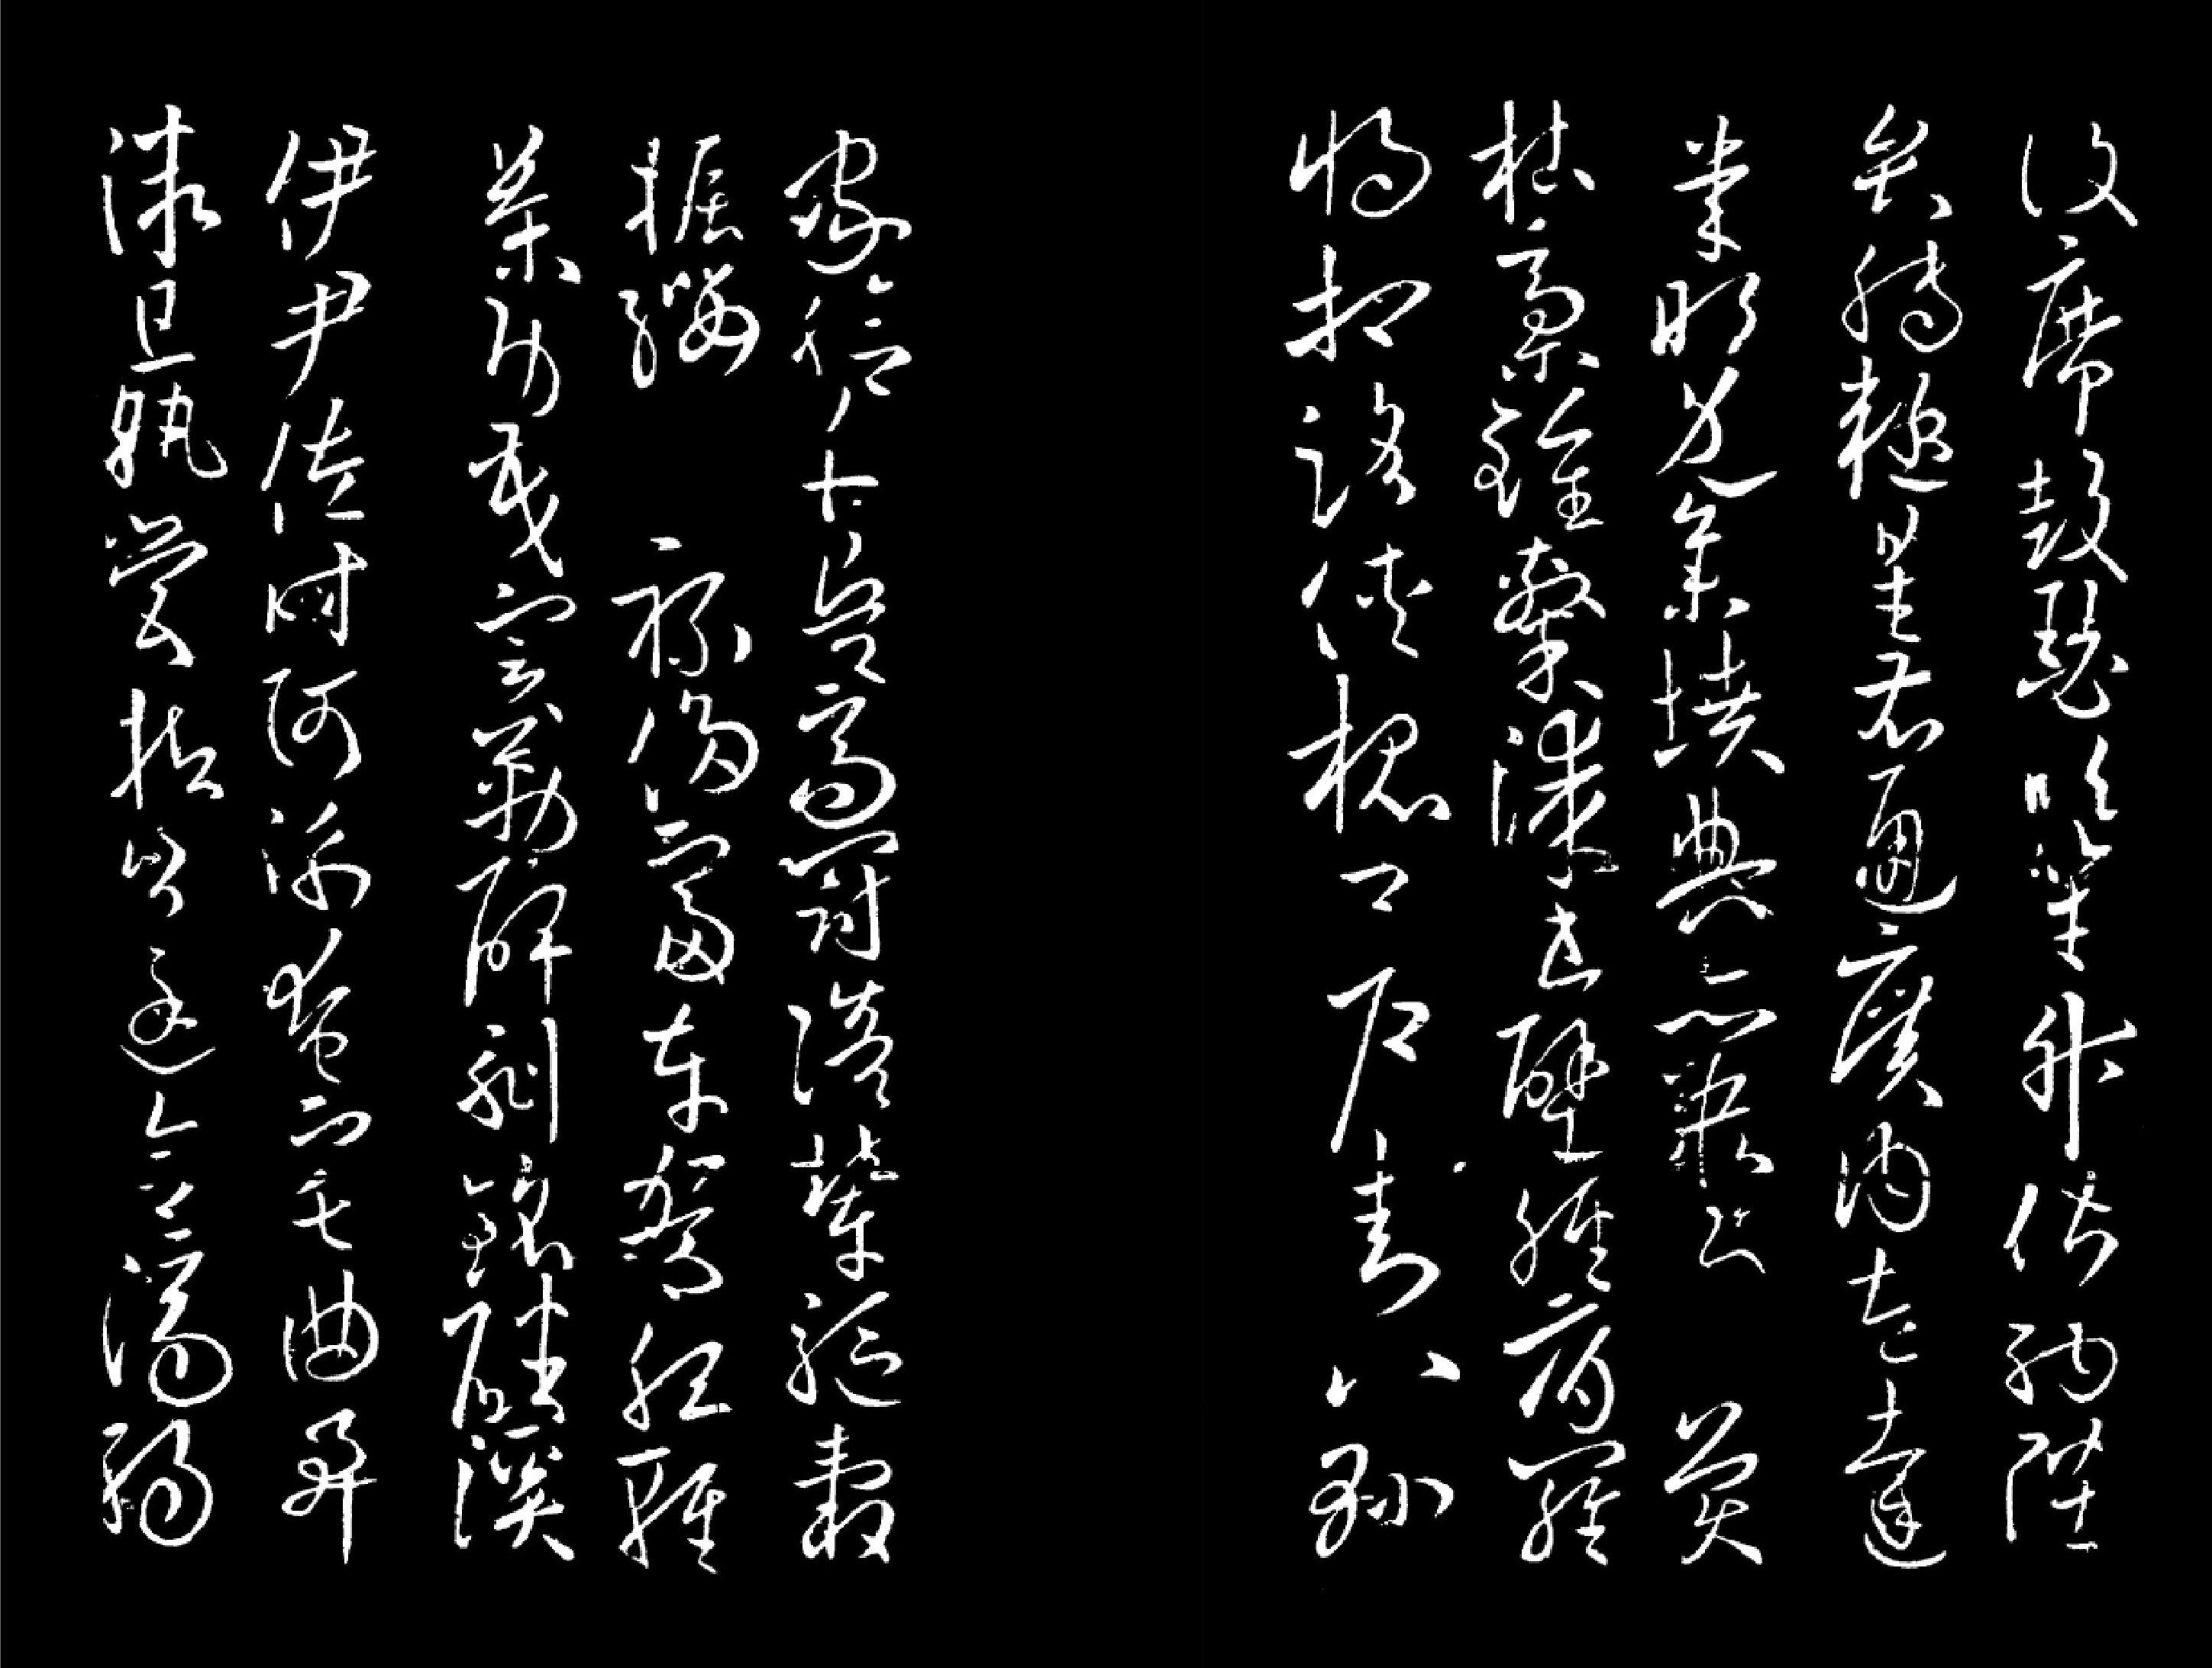 設席鼓瑟吹笙升階納陛
弁轉疑星右通廣內左達
承明既集墳典亦聚 英
杜稾鍾隸漆書壁經府羅
將相路俠槐卿戶封八縣
家給千兵高冠陪輦驅轂
振纓 祿侈富車駕肥輕
策功茂實勒碑刻銘磻溪
伊尹佐時阿衡奄宅曲阜
微旦孰營桓公匡合濟弱